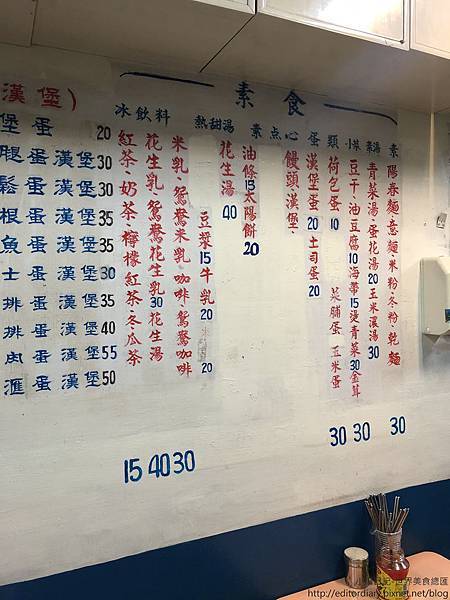 素食
漢堡)
堡蛋 20
腿蛋漢堡 30
鬆蛋漢堡 30
根蛋漢堡 35
魚蛋漢堡 35
士蛋漢堡 30
排蛋漢堡 35
排蛋漢堡 40
肉蛋漢堡 55
滙蛋漢堡 50
冰飲料
紅茶·奶茶·檸檬紅茶·冬瓜茶 15
花生乳·鴛鴦花生乳 30 花生湯 40
米乳·鴛鴦米乳·咖啡·鴛鴦咖啡 30
熱甜湯
豆漿 15 牛乳 20
20
花生湯 40
素点心
油條 15 太陽餅 20
饅頭漢堡
蛋類
漢堡蛋 20 土司蛋 20
荷包蛋 10 菜脯蛋·玉米蛋 30
小菜
豆干·油豆腐 10 海帶 15 燙青菜 30 金茸 30
素湯
青菜湯·蛋花湯 20 玉米濃湯 30
素
陽春麵·意麵·米粉·冬粉·乾麵 30
世界美食總匯
http://editordiary.pixnet.net/blog